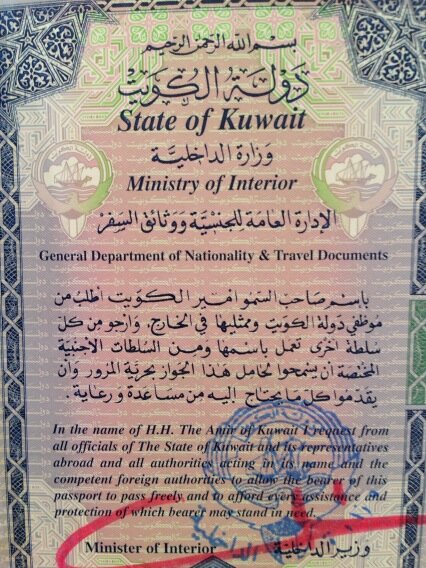 بسم الله الرحمن الرحيم
دولة الكويت
State of Kuwait
وزارة الداخلية
Ministry of Interior
الإدارة العامة للجنسية ووثائق السفر
General Department of Nationality & Travel Documents
باسم صاحب السمو أمير الكويت أطلب من
موظفي دولة الكويت وممثليها في الخارج، وأرجو من كل
سلطة أخرى تعمل باسمها ومن السلطات الأجنبية
المختصة أن يسمحوا لحامل هذا الجواز بحرية المرور وأن
يقدموا كل ما يحتاج إليه من مساعدة ورعاية.
In the name of H.H. The Amir of Kuwait I request from
all officials of The State of Kuwait and its representatives
abroad and all authorities acting in its name and the
competent foreign authorities to allow the bearer of this
passport to pass freely and to afford every assistance and
protection of which bearer may stand in need.
Minister of Interior وزير الداخلية